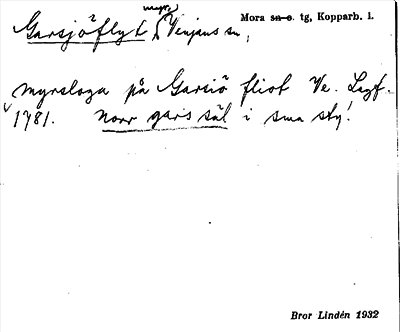 Garsjöflyt (myr) Venjans sn, Mora sn o. tg, Kopparb. l.
myrsloga på Garsiö fliot Ve. Lagf.
1781. norr gars säl i sma sty!
Bror Lindén 1932